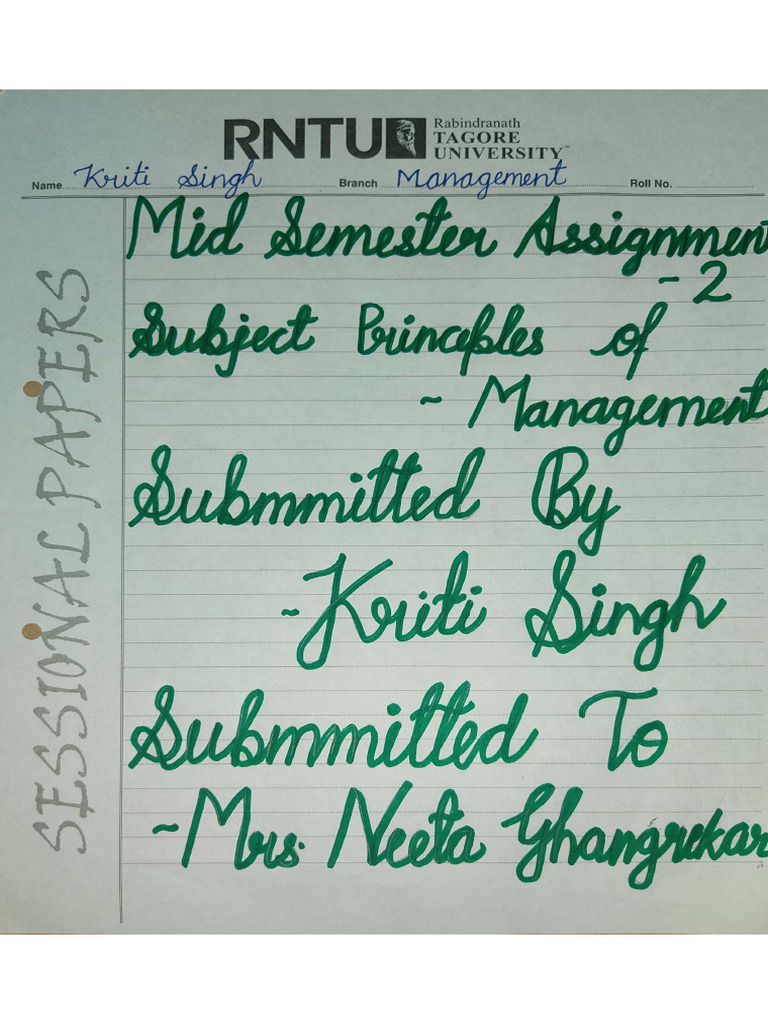 RNTU Rabindranath
TAGORE
UNIVERSITY™
Name Kriti Singh Branch Management Roll No.
SESSIONAL PAPERS
Mid Semester Assignment
- 2
Subject Principles of
~ Management
Submmitted By
~Kriti Singh
Submmitted To
~Mrs. Neeta Ghangrekar